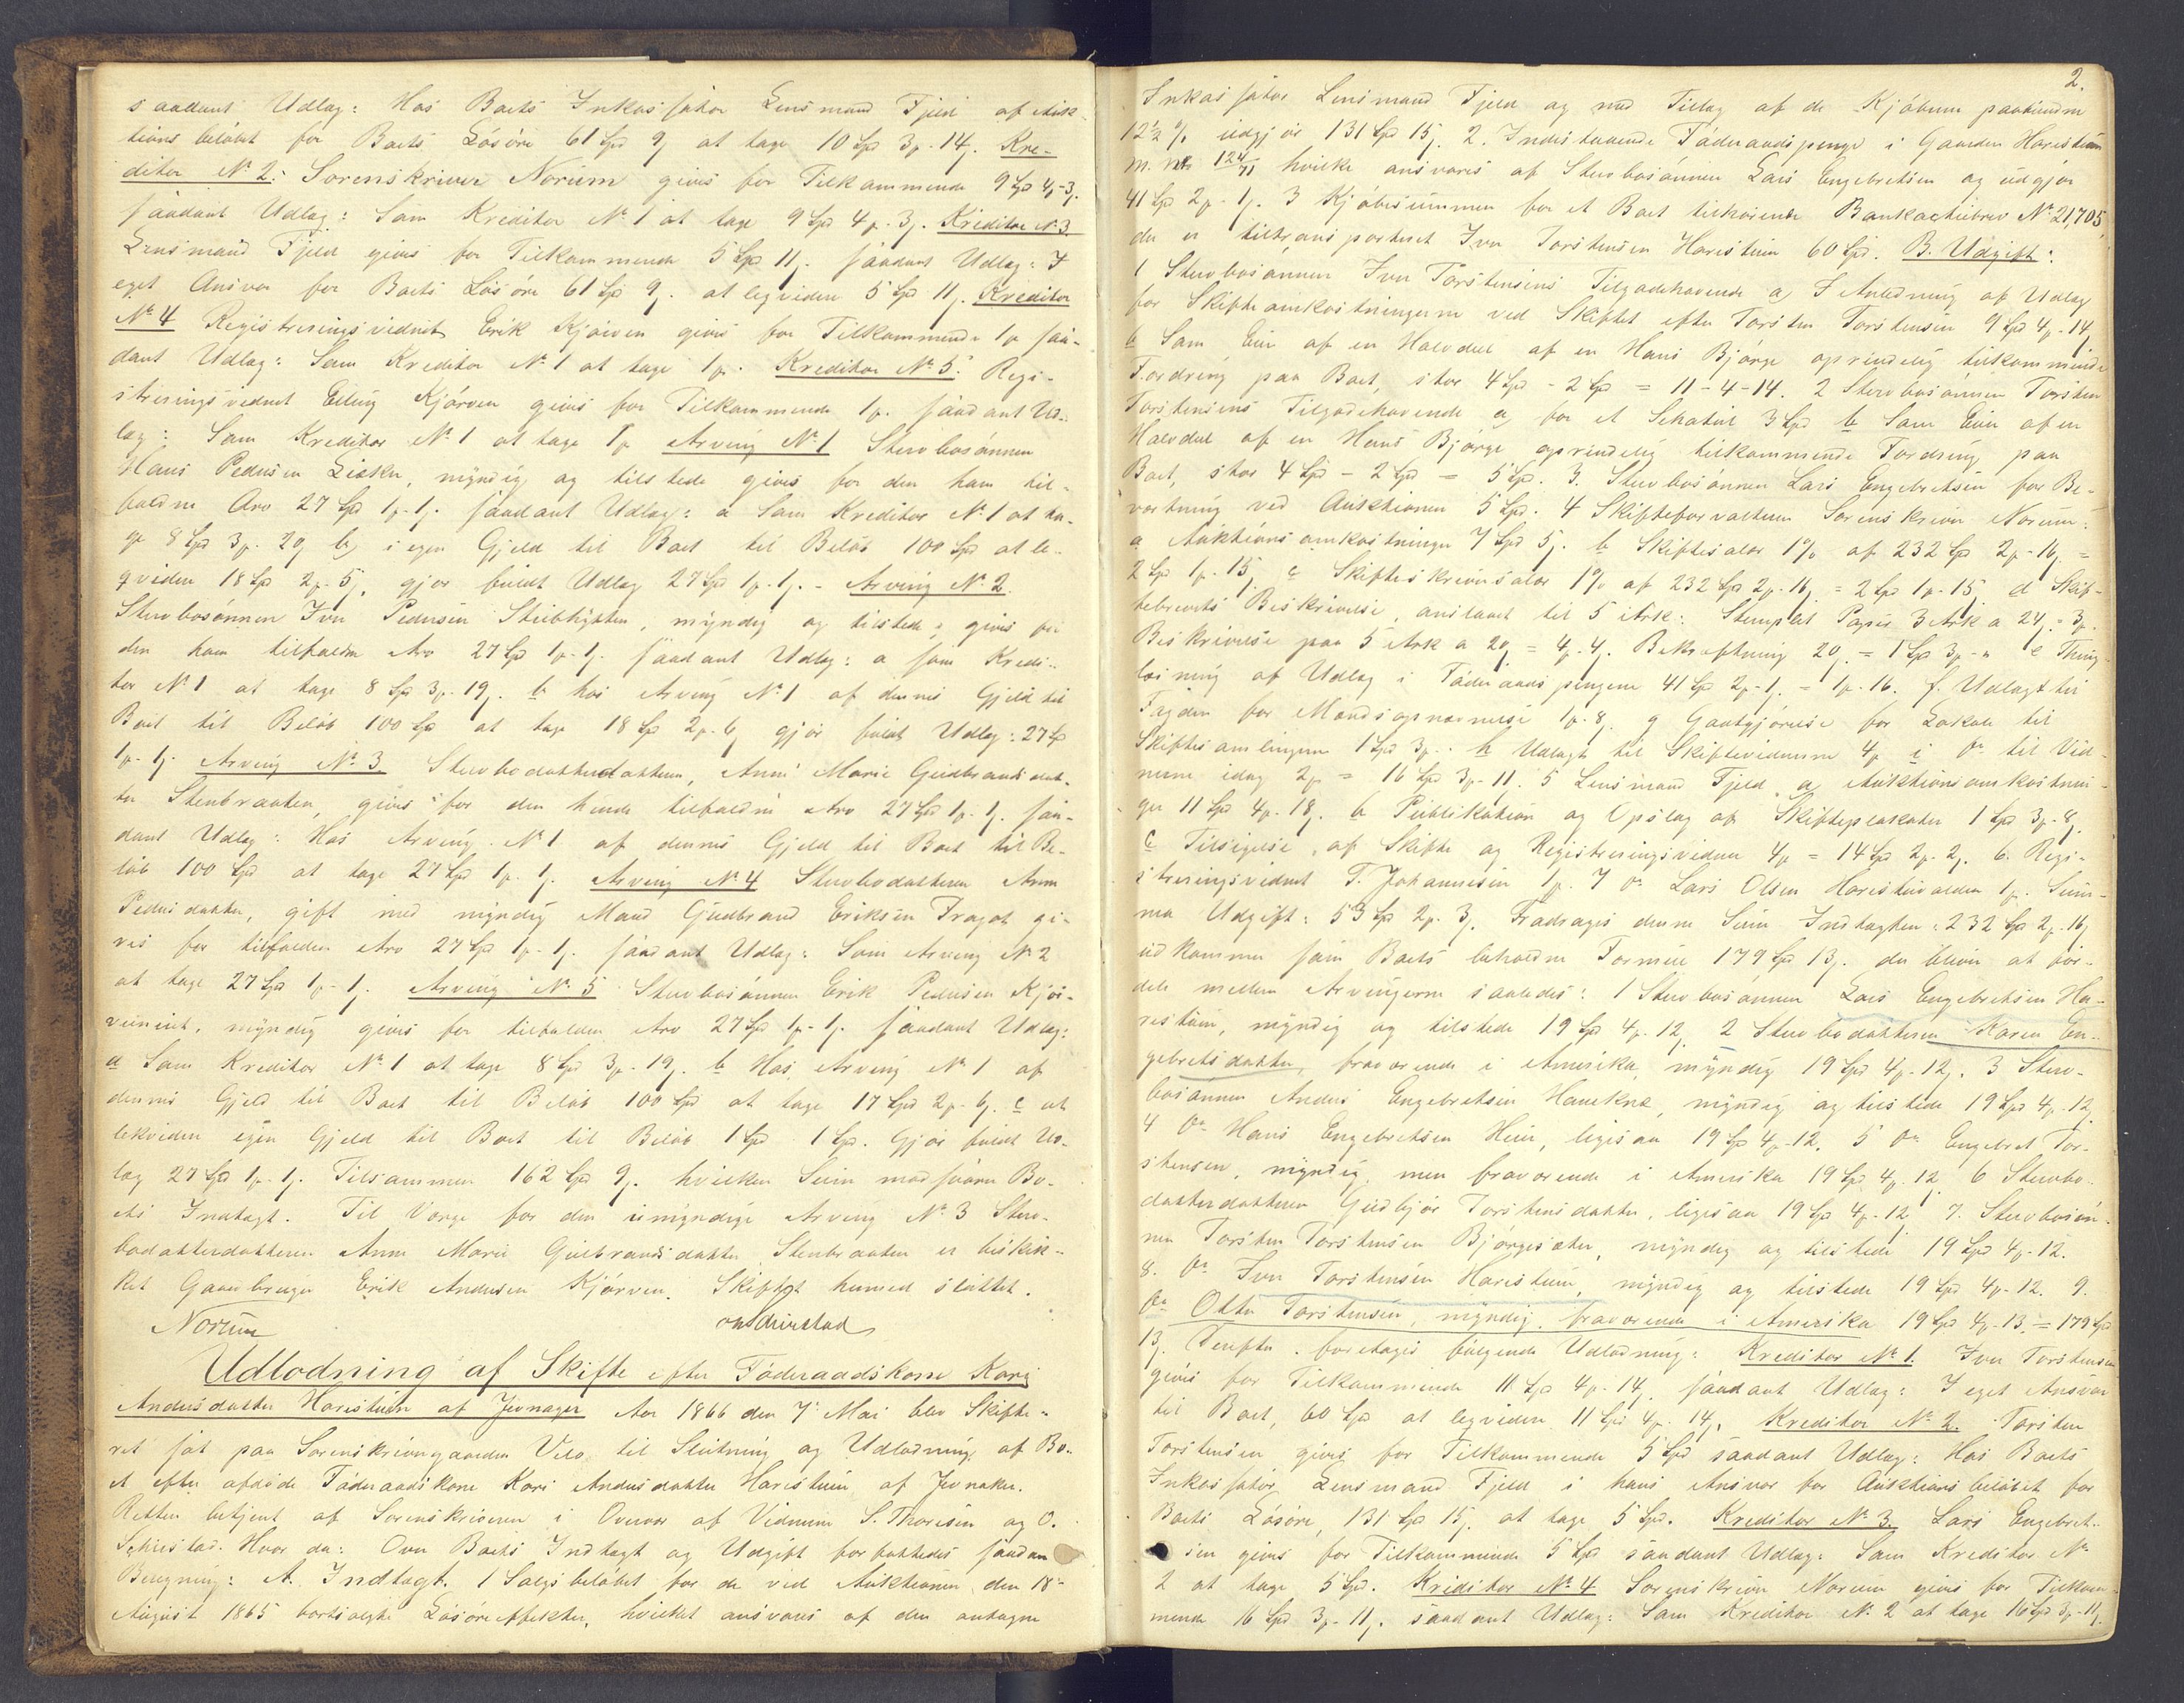 saadant Udlæg: Hos Boets Inkassator Lensmand Fjeld af Auk-
tions beløbet for Boets Løsøre 61 Spd 9 s at tage 10 Spd 3 p. 14 s. Kre-
ditor No 2: Sorenskriver Norum gives for Tilkommende 9 Spd 4 p - 3 s.
saadant Udlæg: Som Kreditor No 1 at tage 9 Spd 4 p. 3 s. Kreditor No 3.
Lensmand Fjeld gives for Tilkommende 5 Spd 11 s. saadant Udlæg: I
eget Ansvar for Boets Løsøre 61 Spd 9 s. at leqvidere 5 Spd 11 s. Kreditor
No 4 Registreringsvidnet Erik Kjørven gives for Tilkommende 1 p saa-
dant Udlæg: Som Kreditor No 1 at tage 1 p. Kreditor No 5: Regi-
streringsvidnet Elling Kjørven gives for Tilkommende 1 p. saadant Ud-
læg: Som Kreditor No 1 at tage 1 p Arving No 1 Stervbosønnen
Hans Pedersen myndig og tilstede gives for den ham til-
faldne Arv 27 Spd 1 p - 1 s. saadant Udlæg: a Som Kreditor No 1 at ta-
ge 8 Spd 3 p. 20 s b, i egen Gjeld til Boet til Beløb 100 Spd at le-
qvidere 18 Spd 2 p - 5 s, gjør fuldt Udlæg 27 Spd 1 p - 1 s. - Arving No 2.
Stervbosønnen Iver Pedersen myndig og tilstede, gives for
den ham tilfaldne Arv 27 Spd 1 p - 1 s. saadant Udlæg: a som Kredi-
tor No 1 at tage 8 Spd 3 p - 19 s. b hos Arving No 1 af dennes Gjeld til
Boet til Beløb 100 Spd at tage 18 Spd 2 p - 6 s gjør fuldt Udlæg: 27 Spd
1 p - 1 s. Arving No 3 Stervbodatterdatteren, Anne Marie Gudbrandsdat-
ter Stenbraaten, gives for den hende tilfaldne Arv 27 Spd 1 p. 1 s. saa-
dant Udlæg: Hos Arving No 1 af dennes Gjeld til Boet til Be-
løb 100 Spd at tage 27 Spd 1 p. 1 s. Arving No 4 Stervbodatteren Anne
Pedersdatter, gift med myndig Mand Gudbrand Eriksen gi-
ves for tilfalden Arv 27 Spd 1 p - 1 s. saadant Udlæg: Som Arving No 2
at tage 27 Spd 1 p - 1 s. Arving No 5 Stervbosønnen Erik Pedersen Kjør-
myndig gives for tilfalden Arv 27 Spd 1 p - 1 s. saadant Udlæg:
a Som Kreditor No 1 at tage 8 Spd 3 p - 19 s. b Hos Arving No 1 af
dennes Gjeld til Boet til Beløb 100 Spd at tage 17 Spd 2 p - 6 s. c at
lekvidere egen Gjeld til Boet til Beløb 1 Spd 1 Spd. Gjør fuldt Ud-
læg 27 Spd 1 p - 1 s. Tilsammen 162 Spd 9 s. hvilken Sum modsvarer Bo-
ets Indtægt. Til Værge for den umyndige Arving No 3 Sterv-
bodatterdatteren Anne Marie Gudbrandsdatter Stenbraaten er beskik-
ket Gaardbruger Erik Andersen Kjørven. Skiftet hermed sluttet.
Norum
Udlodning af Skifte efter Føderaadskone Kari
Andersdatter Harestuen af Jevnager Aar 1866 den 7de Mai blev Skifte-
ret sat paa Sorenskrivergaarden Velo til Slutning og Udlodning af Bo-
et efter afdøde Føderaadskone Kari Andersdatter Harestuen af Jevnaker.
Retten betjent af Sorenskriveren i Overvær af Vidnerne S. Thoresen og O.
Hvor da: Over Boets Indtægt og Udgift forfattedes saadan
Beregning: A. Indtægt. 1 Salgsbeløbet for de ved Auktionen den 18de
August 1865 bortsolgte Løsøreeffekter, hvilket ansvares af den antagne
2.
Inkassator Lensmand Fjeld og med Tillæg af de Kjøberne paabudne
12 1/2 % udgjør 131 Spd 15 s. 2. Indestaaende Føderaadspenge i Gaarden Harestuen
m. No 124/71 hvilke ansvares af Stervbosønnen Lars Engebretsen og udgjør
41 Spd 2 p - 1 s. 3 Kjøbesummen for et Boet tilhørende Bankactiebrev No 21,705,
der er tiltransporteret Iver Torstensen Harestuen 60 Spd. B. Udgift:
1 Stervbosønnen Iver Torstensens Tilgodehavende a, I Anledning af Udlæg
for Skifteomkostningerne ved Skiftet efter Torsten Torstensen 9 Spd 4 p - 14
b Som Eier af en Halvdel af en Hans Bjørge oprindelig tilkommende
Fordring paa Boet, stor 4 Spd - 2 Spd = 11 - 4 - 14. 2 Stervbosønnen Torsten
Torstensens Tilgodehavende a for et Schatul 3 Spd b Som Eier af en
Halvdel af en Hans Bjørge oprindelig tilkommende Fordring paa
Boet, stor 4 Spd - 2 Spd = 5 Spd. 3. Stervbosønnen Lars Engebretsen for Be-
værtning ved Auktionen 5 Spd. 4 Skifteforvalteren Sorenskriver Norum:
a Auktionsomkostninger 7 Spd 5 s. b Skiftesalær 1% af 232 Spd 2 p - 16 s =
2 Spd 1 p - 15 c Skifteskriversalær 1% af 232 Spd 2 p - 16 s = 2 Spd 1 p - 15 d Skif-
tebrevets Beskrivelse, anslaaet til 5 Ark: Stemplet Papir 3 Ark a 24 s = 3 p.
Beskrivelse paa 5 Ark a 20 s = 4 p - 4 s. Bekræftning 20 s = 1 Spd 3 p - " e Thing-
læsning af Udlæg i Føderaadspengene 41 Spd 2 p - 1 s = 1 p - 16. f. Udlagt til
Fogden for Mandsopnævnelse 1 p - 8 s g Godtgjørelse for Lokale til
Skiftesamlingerne 1 Spd 3 p. h Udlagt til Skiftevidnerne 4 p i do til Vid-
nerne idag 2 p = 16 Spd 3 p - 11. 5 Lensmand Fjeld a, Auktionsomkostnin-
ger 11 Spd 4 p - 18 s. b Publikation og Opslag af Skifteplakater 1 Spd 3 p - 8 s.
c Tilsigelse af Skifte og Registreringsvidner 4 p = 14 Spd 2 p. 2 s. 6. Regi-
streringsvidnet T. Johannesen 1 p. 7 do Lars Olsen 1 p. Sum-
ma Udgift: 53 Spd 2 p. 3 s. Fradrages denne Sum Indtægten: 232 Spd 2 p - 16 s
udkommer som Boets beholdne Formue 179 Spd 13 s. der bliver at for-
dele mellem Arvingerne saaledes: 1 Stervbosønnen Lars Engebretsen Ha-
restuen, myndig og tilstede 19 Spd 4 p - 12. 2 Stervbodatteren Karen En-
gebretsdatter, fraværende i Amerika, myndig 19 Spd 4 p - 12 s. 3 Sterv-
bosønnen Anders Engebretsen myndig og tilstede 19 Spd 4 p - 12
4 do Hans Engebretsen ligesaa 19 Spd 4 p - 12. 5 do Engebret Tor-
stensen, myndig, men fraværende i Amerika 19 Spd 4 p. 12. 6 Stervbo-
datterdatteren Gudbjør Torstensdatter, ligesaa 19 Spd 4 p - 12. 7. Stervbosøn-
nen Torsten Torstensen Bjørgesæter, myndig og tilstede 19 Spd 4 p - 12.
8. do Iver Torstensen Harestuen, myndig og tilstede 19 Spd 4 p - 12. 9.
do Otter Torstensen, myndig, fraværende i Amerika 19 Spd 4 p - 13 = 179 Spd
13 s. Derefter foretages følgende Udlodning: Kreditor No 1. Iver Torstensen
gives for Tilkommende 11 Spd 4 p - 14 s. saadant Udlæg: I eget Ansvar
til Boet, 60 Spd at leqvidere 11 Spd 4 p. 14 s. Kreditor No 2. Torsten
Torstensen gives for Tilkommende 5 Spd saadant Udlæg: Hos Boets
Inkassator, Lensmand Fjeld i hans Ansvar for Auktionsbeløbet for
Boets Løsøre, 131 Spd 15 s. at tage 5 Spd. Kreditor No 3. Lars Engebret-
sen gives for Tilkommende 5 Spd saadant Udlæg: Som Kreditor No
2 at tage 5 Spd. Kreditor No 4 Sorenskriver Norum gives for Tilkom-
mende 16 Spd 3 p - 11 s. saadant Udlæg: Som Kreditor No 2 at tage 16 Spd 3 p - 11 s.